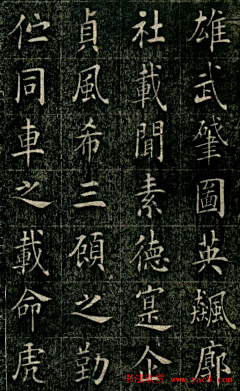 雄武肇圖英飆廓
社載聞素德寔介
貞風希三顧之勤
佇同車之載命虎